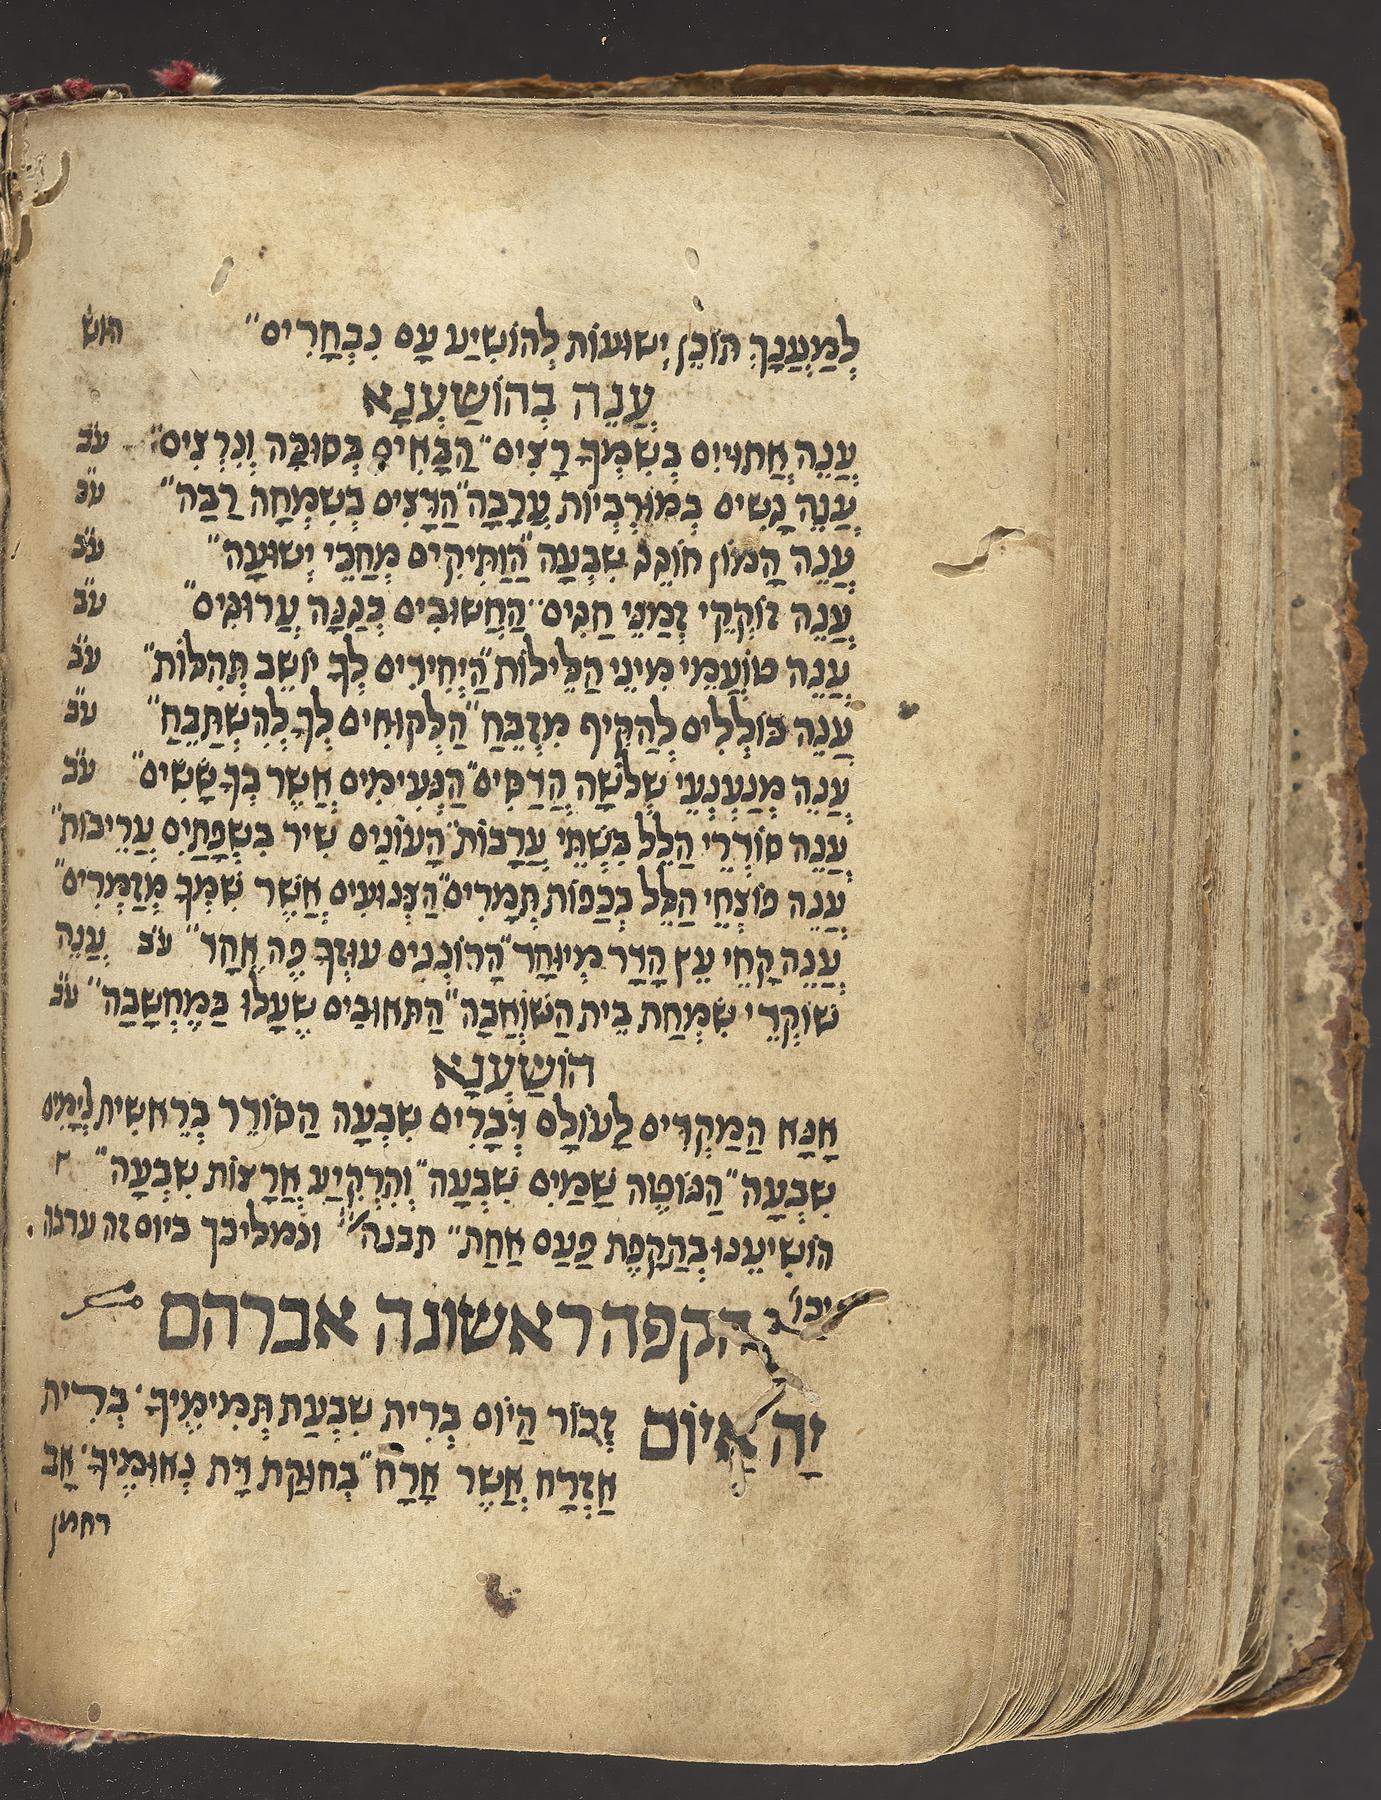 לְמַעֲנָךְ הוֹכֵן יְשׁוּעוֹת לְהוֹשִׁיַע עָם נִבְחָרִים״ הוש
עֲנֵה בְהוֹשַׁעְנָא
עֲנֵה אֲתוּיִם בְּשִׁמְךָ רָצִים״ הַבָּאִים בְּסוּכָּה וְנִרְצִים״ ע״ב
עֲנֵה גָשִׁים בְּמוּרְבִּיוֹת עֲרָבָה״ הַרָצִים בְּשִׂמְחָה רַבָּה״ ע״ב
עֲנֵה הָמוֹן חוֹגֵג שִׁבְעָה״ הַוַתִּיקִים מְחַכֵּי יְשׁוּעָה״ ע״ב
עֲנֵה זוֹקְקֵי זְמַנֵּי חַגִּים״ הַחֲשׁוּבִים כְּגַנָּה עֲרוּגִים״ ע״ב
עֲנֵה טוֹעֲמֵי מִינֵי הַלֵּילוֹת״ הַיְחִירִים לְךָ יוֹשֵׁב תְּהִלּוֹת״ ע״ב
עֲנֵה כּוֹלְלִים לְהַקִּיף מִזְבֵּחַ״ הַלְּקוּחִים לְךָ לְהִשְׁתַּבֵּחַ״ ע״ב
עֲנֵה מְנַעְנְעֵי שְׁלֹשָׁה הֲדַסִּים״ הַנְּעִימִים אֲשֶׁר בְּךָ שָׂשִׂים״ ע״ב
עֲנֵה סוֹדְרֵי הַלֵּל בִּשְׁתֵּי עֲרָבוֹת״ הָעוֹנִים שִׁיר בִּשְׂפָתַיִם עֲרֵיבוֹת״
עֲנֵה פּוֹצְחֵי הַלֵּל בְּכַפּוֹת תְּמָרִים״ הַצְּנוּעִים אֲשֶׁר שִׁמְךָ מְזַמְּרִים״
עֲנֵה קָחֵי עֵץ הָדָר מְיוּחָד״ הָרוֹנְנִים עוּזְּךָ פֶּה אֶחָד״ ע״ב עֲנֵה
שׁוֹקְדֵי שִׂמְחַת בֵּית הַשׁוֹאֲבָה״ הַתְּאוּבִים שֶׁעָלוּ בַּמַּחְשָׁבָה״ ע״ב
הוֹשַׁעְנָא
אָנָּא הַמַּקְדִּים לָעוֹלָם דְּבָרִים שִׁבְעָה הַסּוֹדֵר בְּרֵאשִׁית לְיָמִים
שִׁבְעָה״ הַנּוֹטֶה שָׁמַיִם שִׁבְעָה״ וְהִרְקִיַע אֲרָצוֹת שִׁבְעָה״
הוֹשִׁיעֵנוּ בְּהַקָּפַת פַּעַם אַחַת״ תבנה״ ונמליכך ביום זה ערבה
יכו׳ הקפה ראשונה אברהם
יָהּ אָיוֹם זְכוֹר הַיּוֹם בְּרִית שִׁבְעַת תְּמִימֶיךָ׳ בְּרִית
אֶזְרָח אֲשֶׁר אָרַח״ בְּחוּקַּת דָּת נְאוּמֶיךָ׳ אָב
רחמן